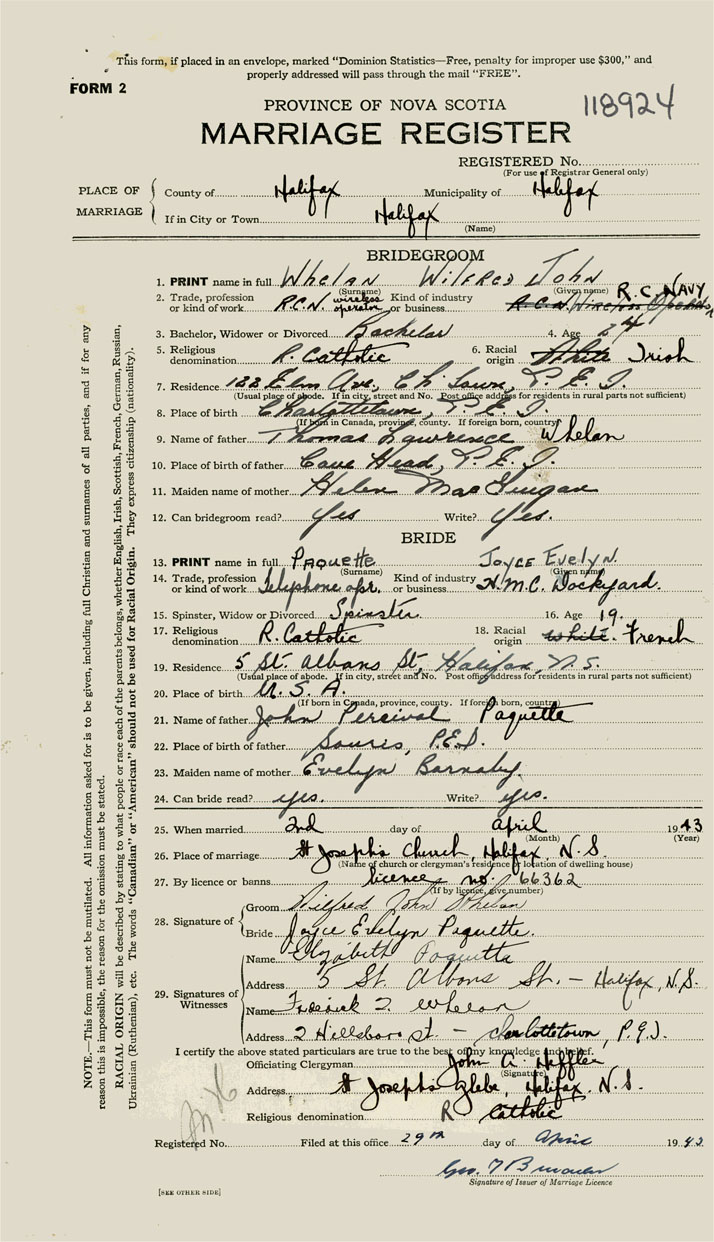 This form, if placed in an envelope, marked "Dominion Statistics—Free, penalty for improper use $300," and
properly addressed will pass through the mail "FREE".
FORM 2
PROVINCE OF NOVA SCOTIA
118924
MARRIAGE REGISTER
REGISTERED No.
(For use of Registrar General only)
PLACE OF MARRIAGE
County of Halifax Municipality of Halifax
If in City or Town Halifax
(Name)
BRIDEGROOM
1. PRINT name in full Whelan Wilfred John
(Surname) (Given name)
2. Trade, profession or kind of work R.C.N. wireless operator Kind of industry or business R.C.N. Wireless Operator R.C. NAVY
3. Bachelor, Widower or Divorced Bachelor 4. Age 24
5. Religious denomination R. Catholic 6. Racial origin White Irish
7. Residence 122 Elm Ave, Ch Town, P.E.I.
(Usual place of abode. If in city, street and No. Post office address for residents in rural parts not sufficient)
8. Place of birth Charlottetown, P.E.I.
(If born in Canada, province, county. If foreign born, country)
9. Name of father Thomas Lawrence Whelan
10. Place of birth of father Cove Head, P.E.I.
11. Maiden name of mother Helen MacGuigan
12. Can bridegroom read? Yes Write? Yes.
BRIDE
13. PRINT name in full Paquette Joyce Evelyn.
(Surname) (Given name)
14. Trade, profession or kind of work Telephone opr. Kind of industry or business H.M.C. Dockyard.
15. Spinster, Widow or Divorced Spinster 16. Age 19.
17. Religious denomination R. Catholic 18. Racial origin White. French
19. Residence 5 St. Albans St, Halifax, N.S.
(Usual place of abode. If in city, street and No. Post office address for residents in rural parts not sufficient)
20. Place of birth U.S.A.
(If born in Canada, province, county. If foreign born, country)
21. Name of father John Percival Paquette
22. Place of birth of father Souris, P.E.I.
23. Maiden name of mother Evelyn Barnaby.
24. Can bride read? yes. Write? yes.
25. When married 2nd day of april 1943
(Month) (Year)
26. Place of marriage St Joseph's Church, Halifax, N.S.
(Name of church or clergyman's residence or location of dwelling house)
27. By licence or banns licence no. 66362
(If by licence, give number)
28. Signature of
Groom Wilfred John Whelan
Bride Joyce Evelyn Paquette.
29. Signatures of Witnesses
Name Elizabeth Paquette
Address 5 St. Albans St. — Halifax, N.S.
Name Frederick J. Whelan
Address 2 Hillsboro St — Charlottetown, P.E.I.
I certify the above stated particulars are true to the best of my knowledge and belief.
Officiating Clergyman John A. Heffler
(Signature)
Address St Joseph's Glebe, Halifax, N.S.
Religious denomination R Catholic
Registered No. Filed at this office 29th day of April 1943
Geo. T
Signature of Issuer of Marriage Licence
[SEE OTHER SIDE]
NOTE.—This form must not be mutilated. All information asked for is to be given, including full Christian and surnames of all parties, and if for any
reason this is impossible, the reason for the omission must be stated.
RACIAL ORIGIN will be described by stating to what people or race each of the parents belongs, whether English, Irish, Scottish, French, German, Russian,
Ukrainian (Ruthenian), etc. The words "Canadian" or "American" should not be used for Racial Origin. They express citizenship (nationality).